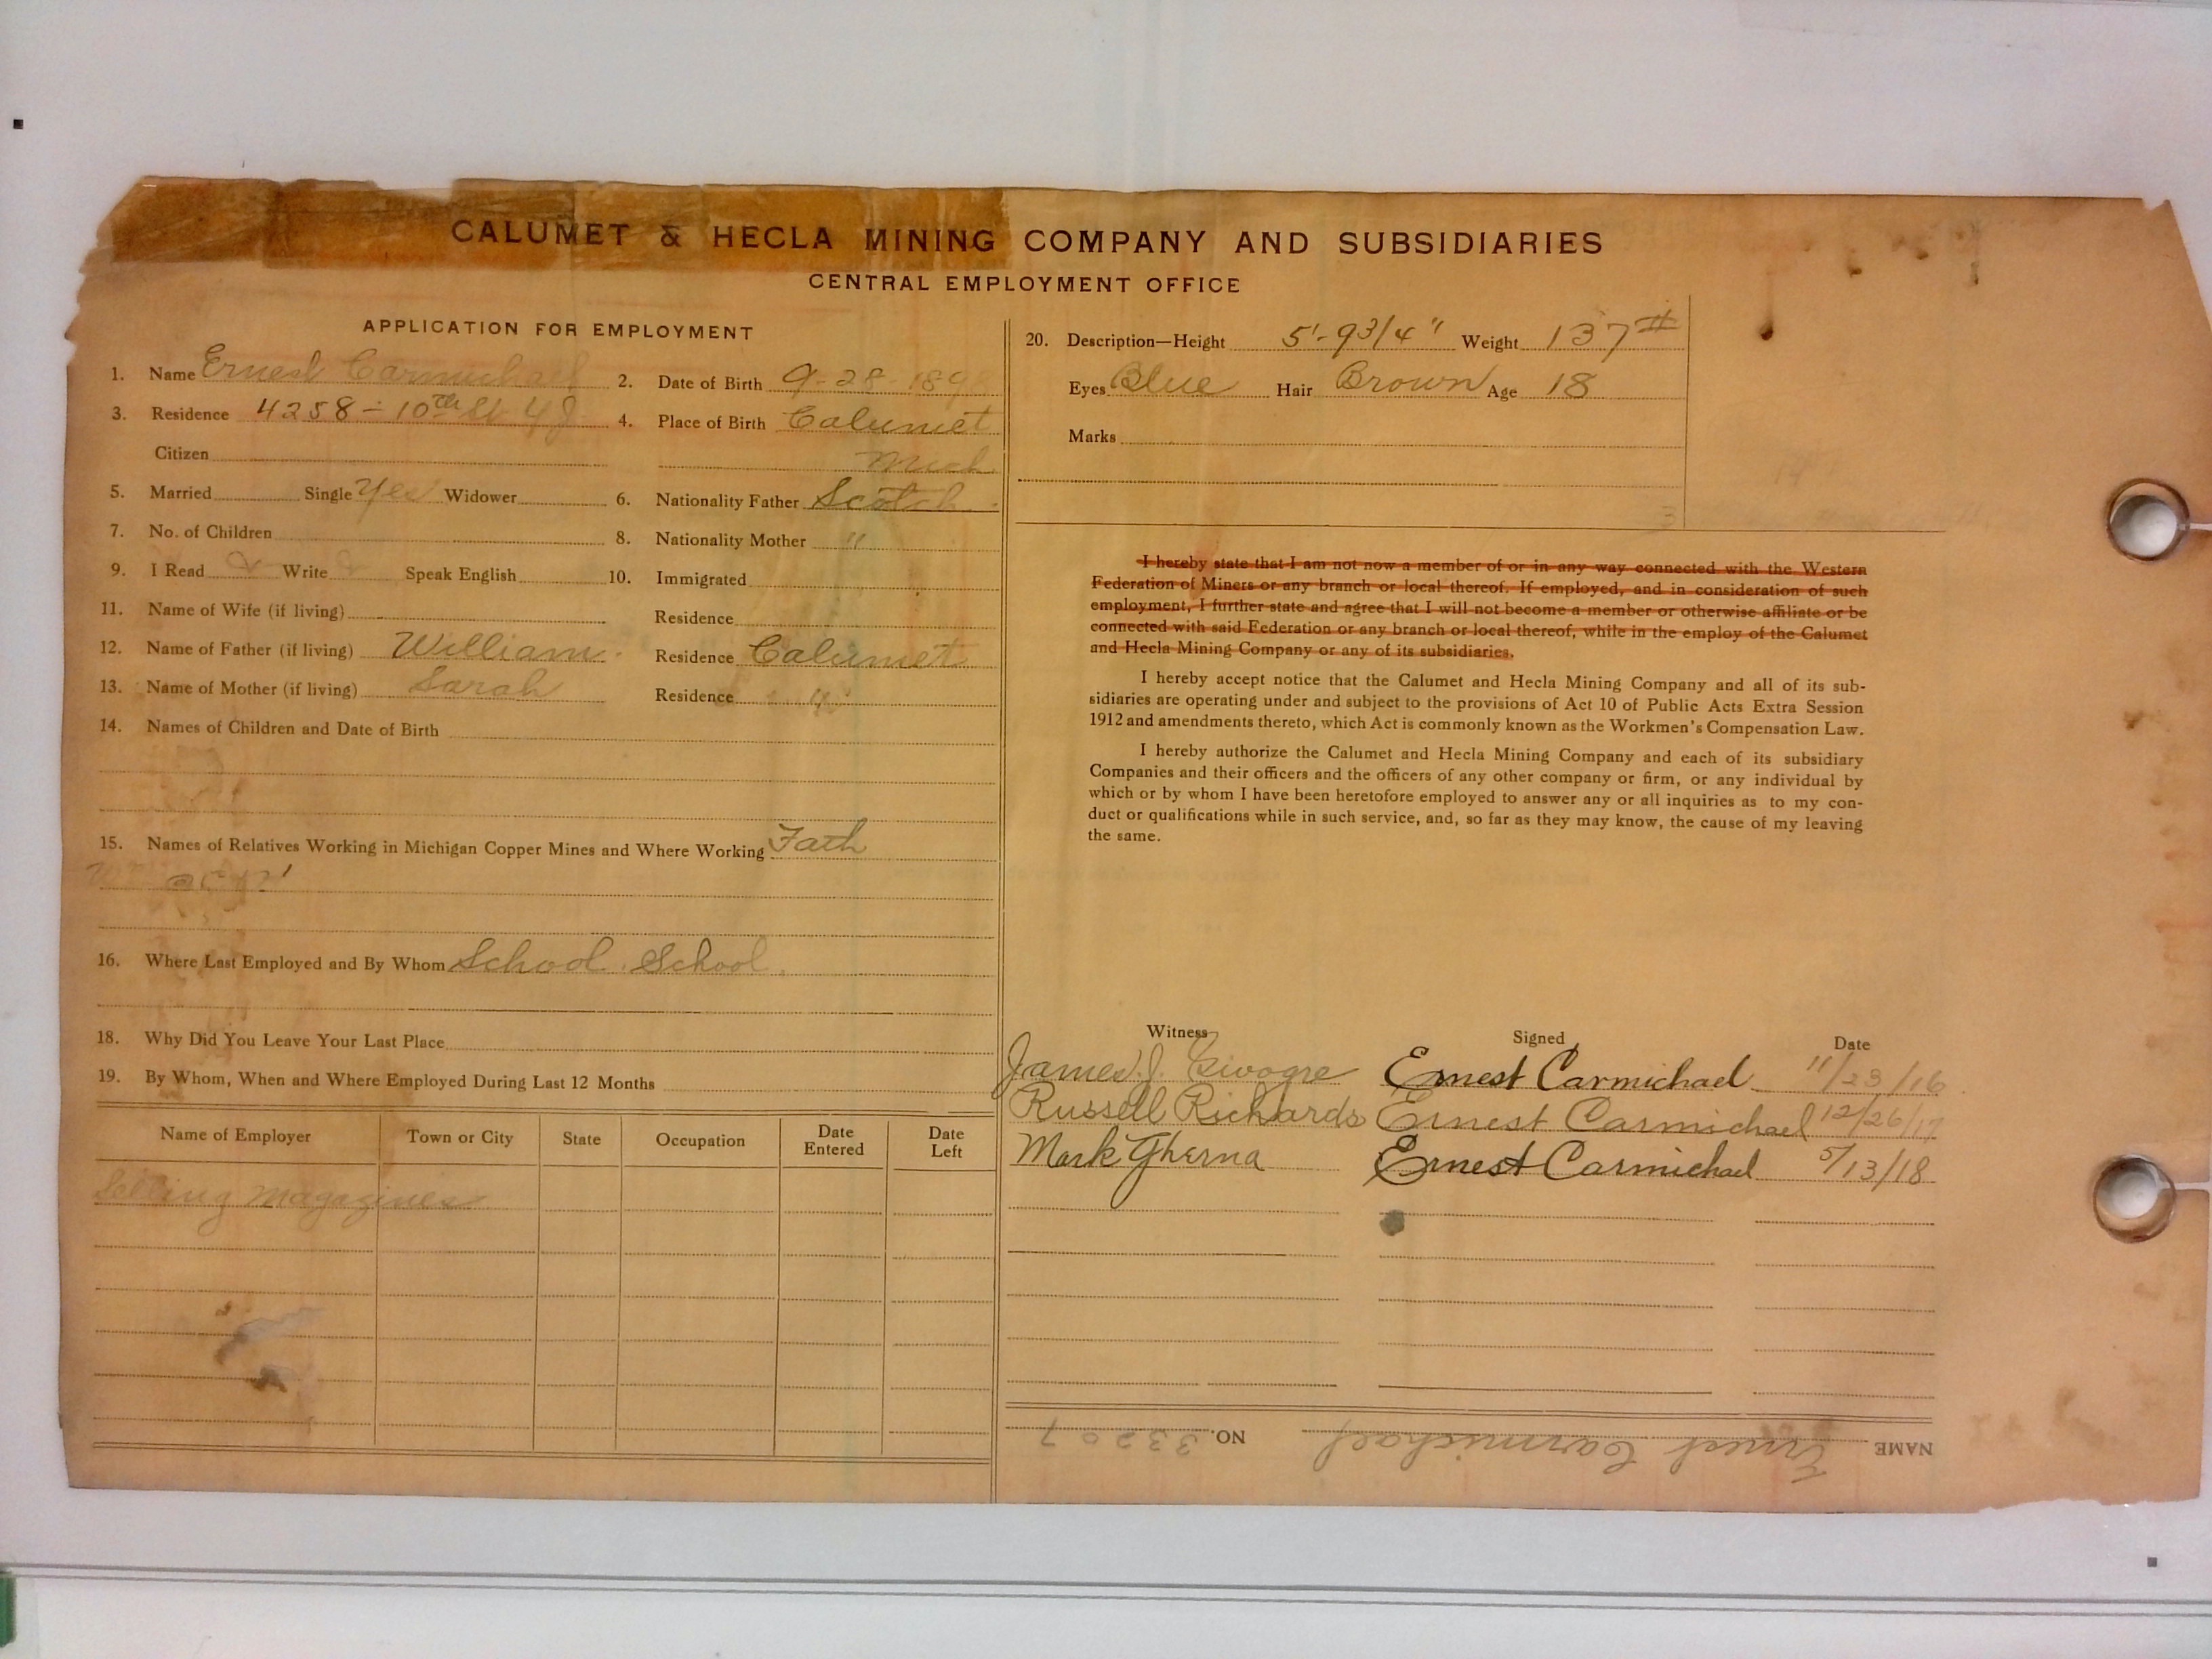 CALUMET & HECLA MINING COMPANY AND SUBSIDIARIES
CENTRAL EMPLOYMENT OFFICE
APPLICATION FOR EMPLOYMENT
1. Name Ernest Carmichael 2. Date of Birth 9-28-189
3. Residence 4258-10th St 4. Place of Birth Calumet
Citizen Mich
5. Married Single Yes Widower 6. Nationality Father Scotch
7. No. of Children 8. Nationality Mother "
9. I Read Write Speak English 10. Immigrated
11. Name of Wife (if living) Residence
12. Name of Father (if living) William Residence Calumet
13. Name of Mother (if living) Sarah Residence "
14. Names of Children and Date of Birth
15. Names of Relatives Working in Michigan Copper Mines and Where Working Fath
16. Where Last Employed and By Whom School. School.
18. Why Did You Leave Your Last Place
19. By Whom, When and Where Employed During Last 12 Months
Name of Employer Town or City State Occupation Date Entered Date Left
Selling magazines
20. Description—Height 5'-9 3/4" Weight 137#
Eyes Blue Hair Brown Age 18
Marks
I hereby state that I am not now a member of or in any way connected with the Western
Federation of Miners or any branch or local thereof. If employed, and in consideration of such
employment, I further state and agree that I will not become a member or otherwise affiliate or be
connected with said Federation or any branch or local thereof, while in the employ of the Calumet
and Hecla Mining Company or any of its subsidiaries.
I hereby accept notice that the Calumet and Hecla Mining Company and all of its sub-
sidiaries are operating under and subject to the provisions of Act 10 of Public Acts Extra Session
1912 and amendments thereto, which Act is commonly known as the Workmen's Compensation Law.
I hereby authorize the Calumet and Hecla Mining Company and each of its subsidiary
Companies and their officers and the officers of any other company or firm, or any individual by
which or by whom I have been heretofore employed to answer any or all inquiries as to my con-
duct or qualifications while in such service, and, so far as they may know, the cause of my leaving
the same.
Witness Signed Date
James J. Ernest Carmichael 11/23/16
Russell Richards Ernest Carmichael 12/26/17
Mark Gherna Ernest Carmichael 5/13/18
NAME Ernest Carmichael NO. 33207